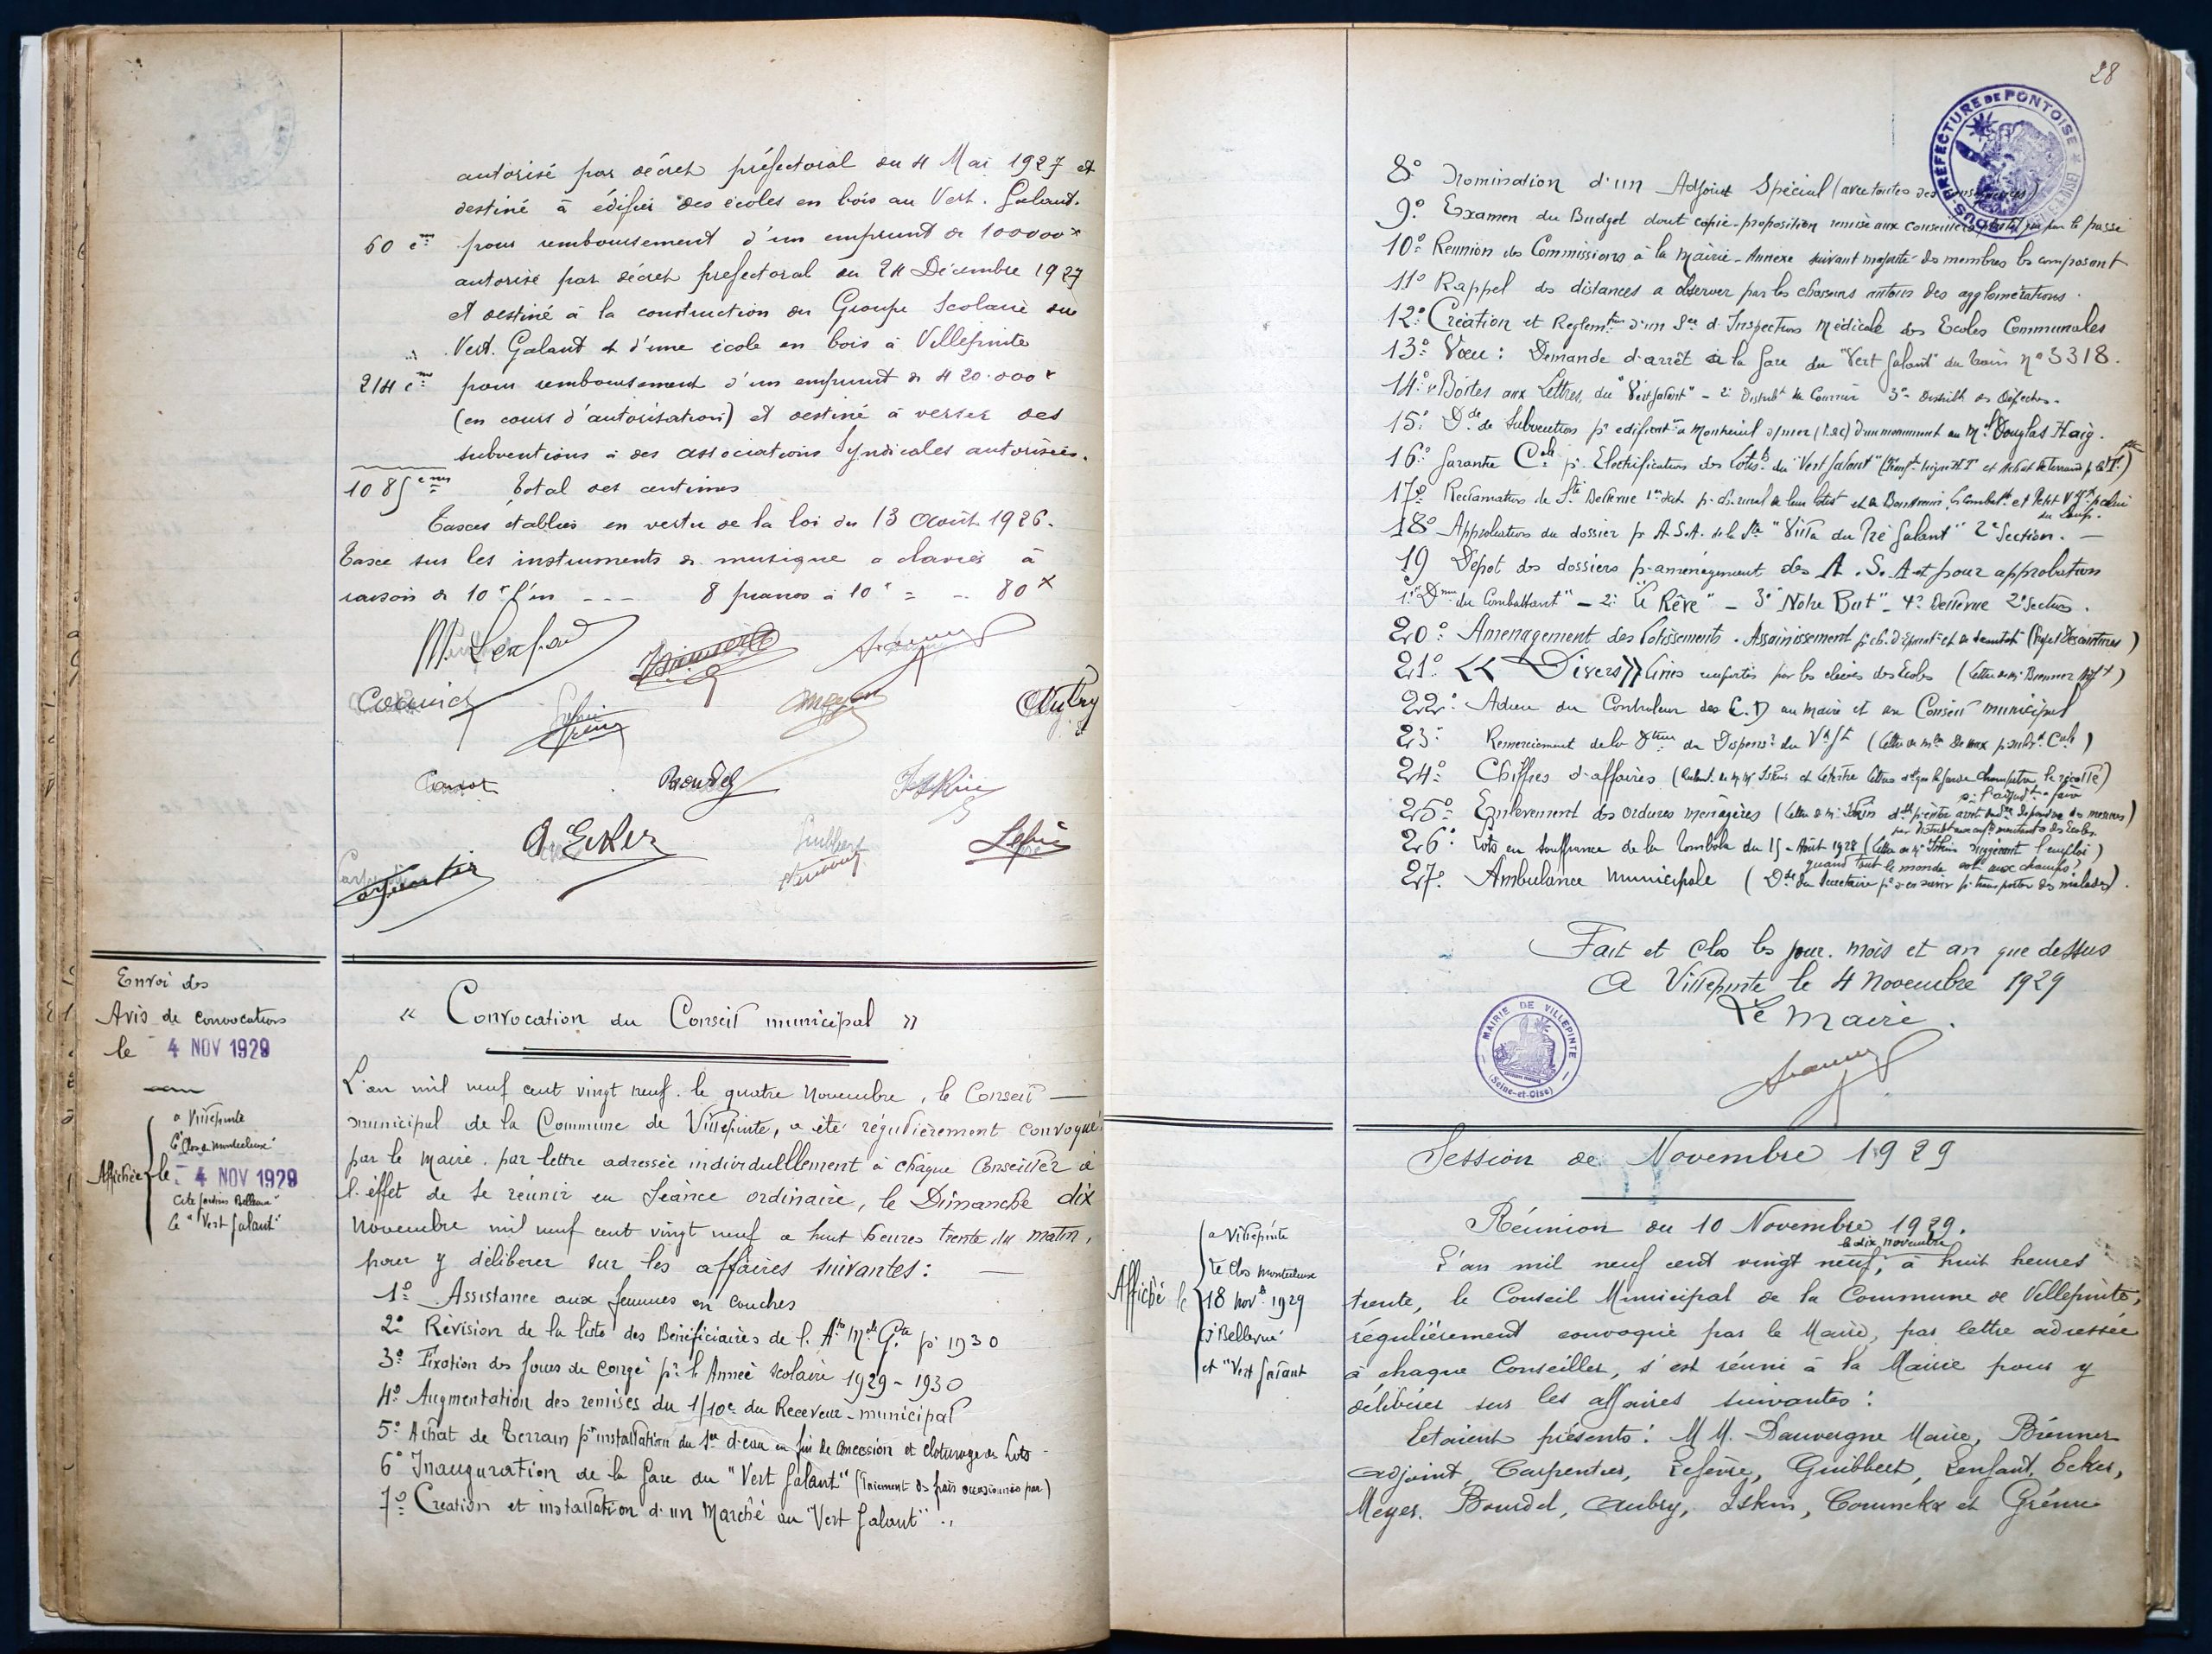 autorisé par décret préfectoral du 4 Mai 1927 et
destiné à édifier des écoles en bois au Vert. Galant.
60 cmes pour remboursement d'un emprunt de 100000 f
autorisé par décret préfectoral du 24 Décembre 1927
et destiné à la construction du Groupe Scolaire du
Vert. Galant et d'une école en bois à Villepinte
214 cmes pour remboursement d'un emprunt de 420.000 f
(en cours d'autorisation) et destiné à verser des
subventions à des associations Syndicales autorisées.
1085 cmes Total des centimes
Taxes établies en vertu de la loi du 13 Août 1926.
Taxe sur les instruments de musique a clavier à
raison de 10 f l'un --- 8 pianos à 10 f = - 80 f
M. Lenfant
Aubry
Bourdel
A. Eeker
Guilbert
Lefèvre
Carpentier
Envoi des
Avis de convocations
le 4 NOV 1929
Affichée le - 4 NOV 1929
a Villepinte
le "Clos de Montceleux"
Cité Jardins Bellevue"
Le "Vert Galant"
« Convocation du Conseil municipal »
L'an mil neuf cent vingt neuf. le quatre Novembre, le Conseil
municipal de la Commune de Villepinte, a été régulièrement convoqué
par le Maire. par lettre adressée individulllement à chaque Conseiller à
l'éffet de se réunir en Séance ordinaire, le Dimanche dix
Novembre mil neuf cent vingt neuf a huit heures trente du matin,
pour y délibérer sur les affaires suivantes :
1º Assistance aux femmes en couches
2º Révision de la liste des Bénéficiaires de l. Ate Mcle Gte pr 1930
3º Fixation des Jours de congé pr. l. Année scolaire 1929 - 1930
4º Augmentation des remises du 1/10e du Receveur - municipal
5º Achat de Terrain pr installation du Sce d'eau en fin de concession et cloturage des Lots
6º Inauguration de la Gare du "Vert Galant" (Paiement des frais occasionnés par)
7º Création et installation d'un Marché au "Vert Galant".
28
SOUS-PRÉFECTURE DE PONTOISE
8º Nomination d'un Adjoint Spécial (avec toutes ses conséquences)
9º Examen du Budget dont copie-proposition remise aux conseillers par le passé
10º Réunion des Commissions à la Mairie-Annexe suivant majorité des membres les composant
11º Rappel des distances a observer par les chasseurs autour des agglomérations.
12º Création et Reglemtion d'un Sce d'Inspection Médicale des Ecoles Communales
13º Vœu : Demande d'arrêt à la Gare du "Vert Galant" du train nº 3318.
14º Boîtes aux Lettres du "Vert Galant" - 2º Distribt de Courrier 3º Distribt des Dépêches.
15º Dde de Subvention pr edificaton a Montreuil s/mer (P.d.C) d'un monument au Mal Douglas Haig.
16º Garantie Cale pr Electrification des Lotists du "Vert Galant"
17º Réclamation de Sté Bellevue
18º Approbation du dossier pr A.S.A. de la Sté "Villa du Pré Galant" 2e Section.
19 Dépot des dossiers pr aménagement des A.S.A et pour approbation
1º "Dne du Combattant" - 2º "Le Rêve" - 3º "Notre But" - 4º Bellevue 2e Section.
20º Aménagement des Lotissements. Assainissement
21º « Divers » Livres emportés par les élèves des Ecoles
22º Adieu du Controleur des C.D au Maire et au Conseil municipal
23º Remerciement de la Dtrice du Dispens. du Vt Gt
24º Chiffres d'affaires
25º Enlèvement des ordures ménagères
26º Lots en souffrance de la Tombola du 15 - Août 1928 (Lettre de Mr Iskin suggérant l'emploi)
quand tout le monde est aux champs?
27º Ambulance Municipale (Dde du Secrétaire pr s'en servir pr transporter des malades).
Fait et clos les jour. mois et an que dessus
A Villepinte le 4 Novembre 1929
Le Maire.
MAIRIE DE VILLEPINTE
(Seine-et-Oise)
Session de Novembre 1929
Réunion du 10 Novembre 1929.
Affiché le
a Villepinte
Le Clos Montceleux
18 Novb. 1929
Bellevue
et "Vert Galant
le dix novembre
L'an mil neuf cent vingt neuf, à huit heures
trente, le Conseil Municipal de la Commune de Villepinte,
régulièrement convoqué par le Maire, par lettre adressée
à chaque Conseiller, s'est réuni à la Mairie pour y
délibérer sur les affaires suivantes :
Etaient présents : M M. Dauvergne Maire, Biénner
adjoint, Carpentier, Lefèvre, Guilbert, Lenfant, Ecker,
Meyer, Bourdel, Aubry, Iskin, Couninckx et Grénier